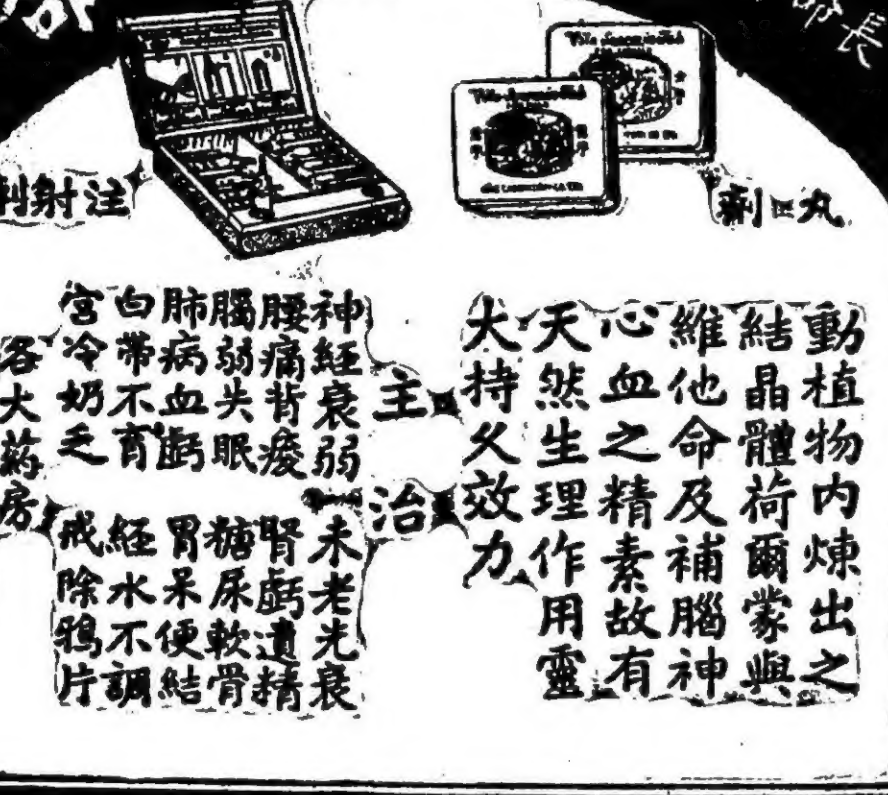 部長
丸剤
注射剤
動植物内煉出之
結晶體荷爾蒙與
維他命及補腦神
心血之精素故有
天然生理作用靈
大持久效力
主治
神經衰弱
腰痛背痠
腦弱失眠
肺病血虧
白帶不育
宮冷奶乏
未老先衰
腎虧遺精
糖尿軟骨
胃呆便結
經水不調
戒除鴉片
各大葯房